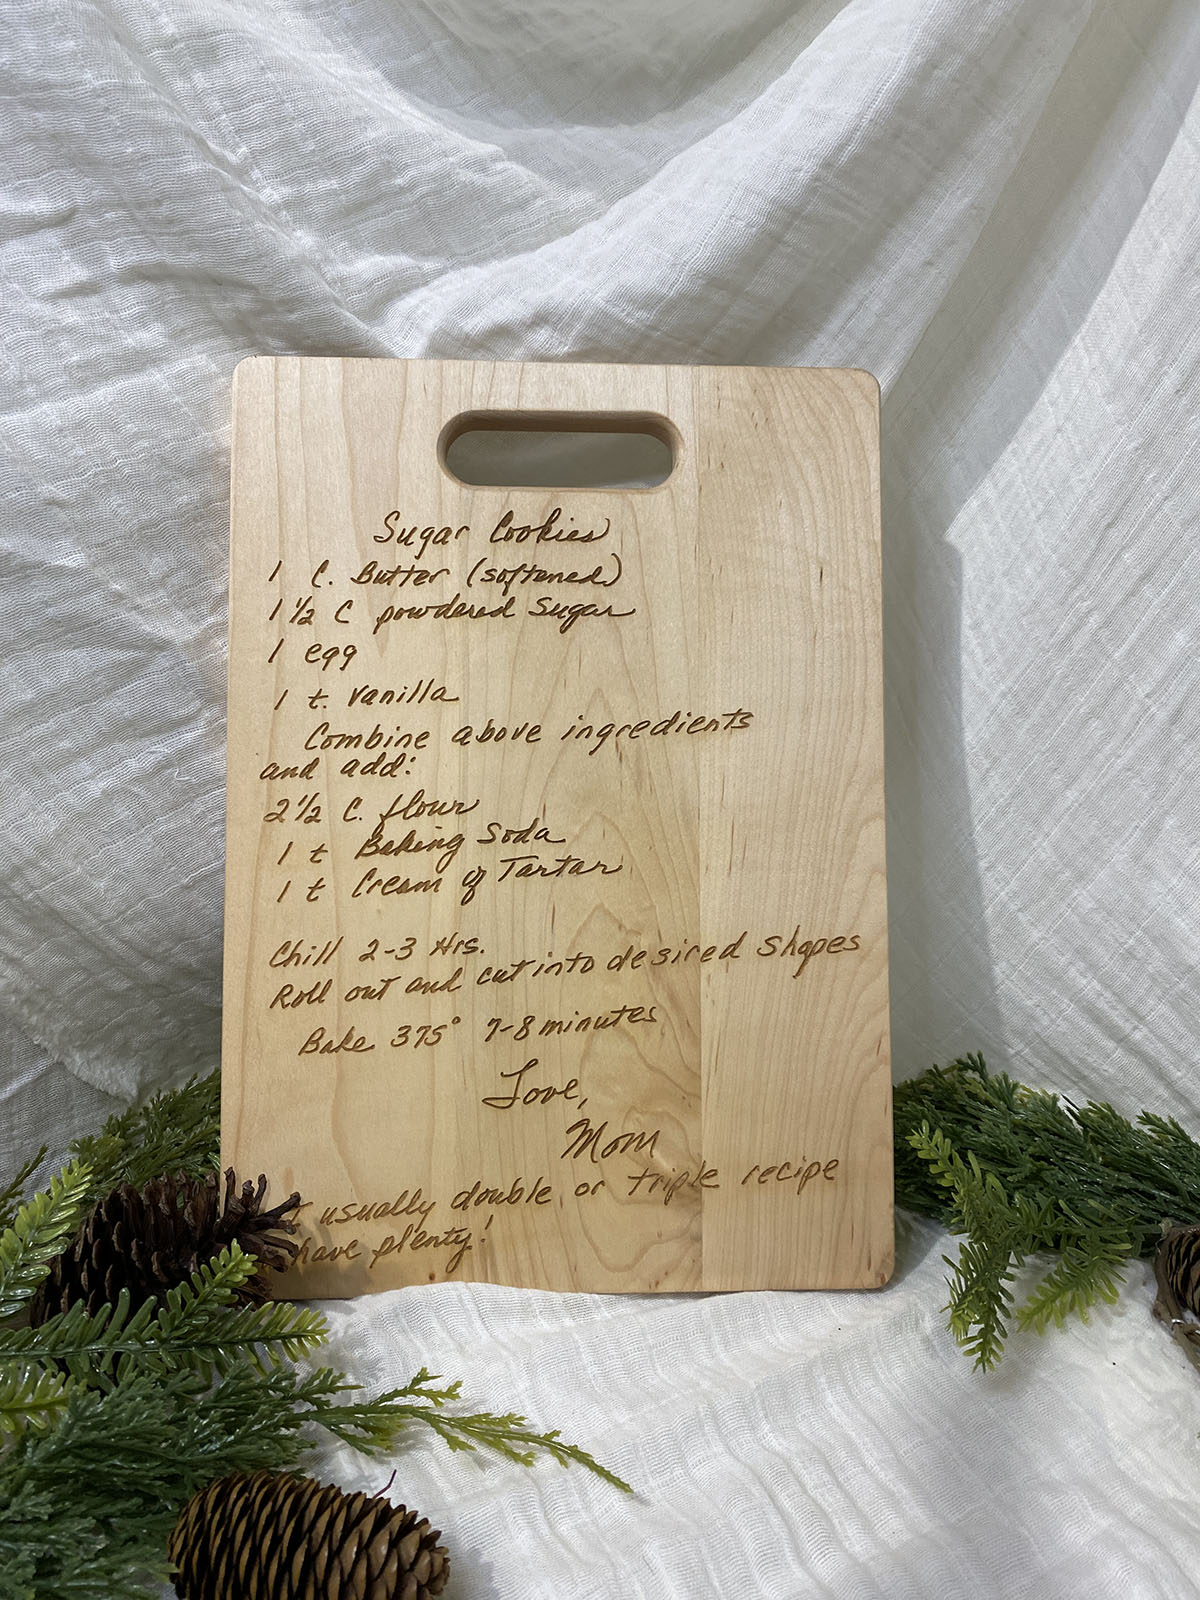 Sugar Cookies
1 C. Butter (softened)
1 1/2 C powdered Sugar
1 egg
1 t. vanilla
Combine above ingredients
and add:
2 1/2 C. flour
1 t Baking Soda
1 t Cream of Tartar
Chill 2-3 Hrs.
Roll out and cut into desired shapes
Bake 375° 7-8 minutes
Love,
Mom
I usually double or triple recipe
have plenty!